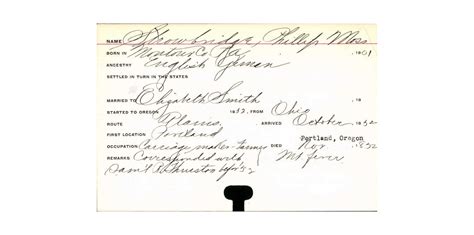 NAME Strowbridge, Phillip Moss
BORN IN Montour Co Pa 1801
ANCESTRY English German
SETTLED IN TURN IN THE STATES
MARRIED TO Elizabeth Smith 18
STARTED TO OREGON 1852, FROM Ohio
ROUTE Plains ARRIVED October 1852
FIRST LOCATION Portland Portland, Oregon
OCCUPATION Carriage maker-tanner DIED Nov 1852
REMARKS Corresponded with Mt fever
Sam'l R Thurston before 52